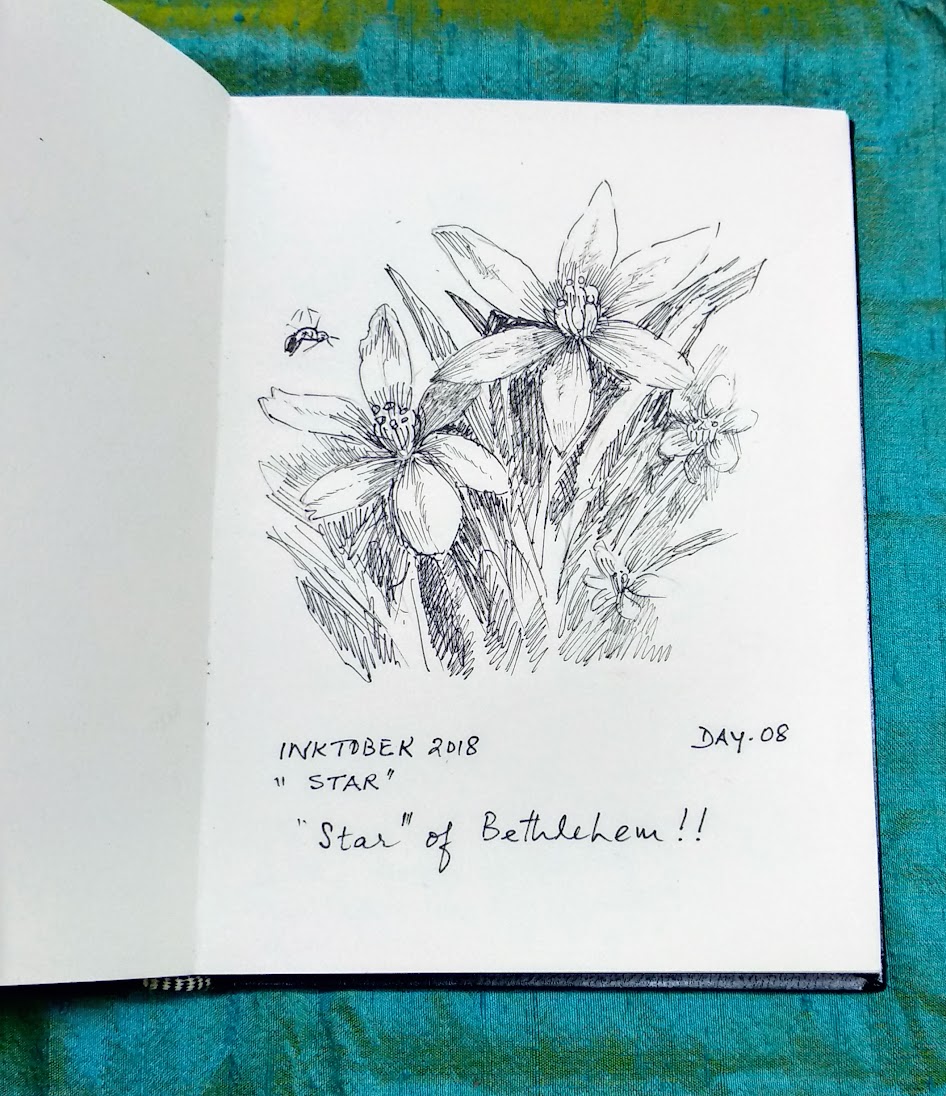 INKTOBER 2018 DAY-08
"STAR"
"Star" of Bethlehem!!